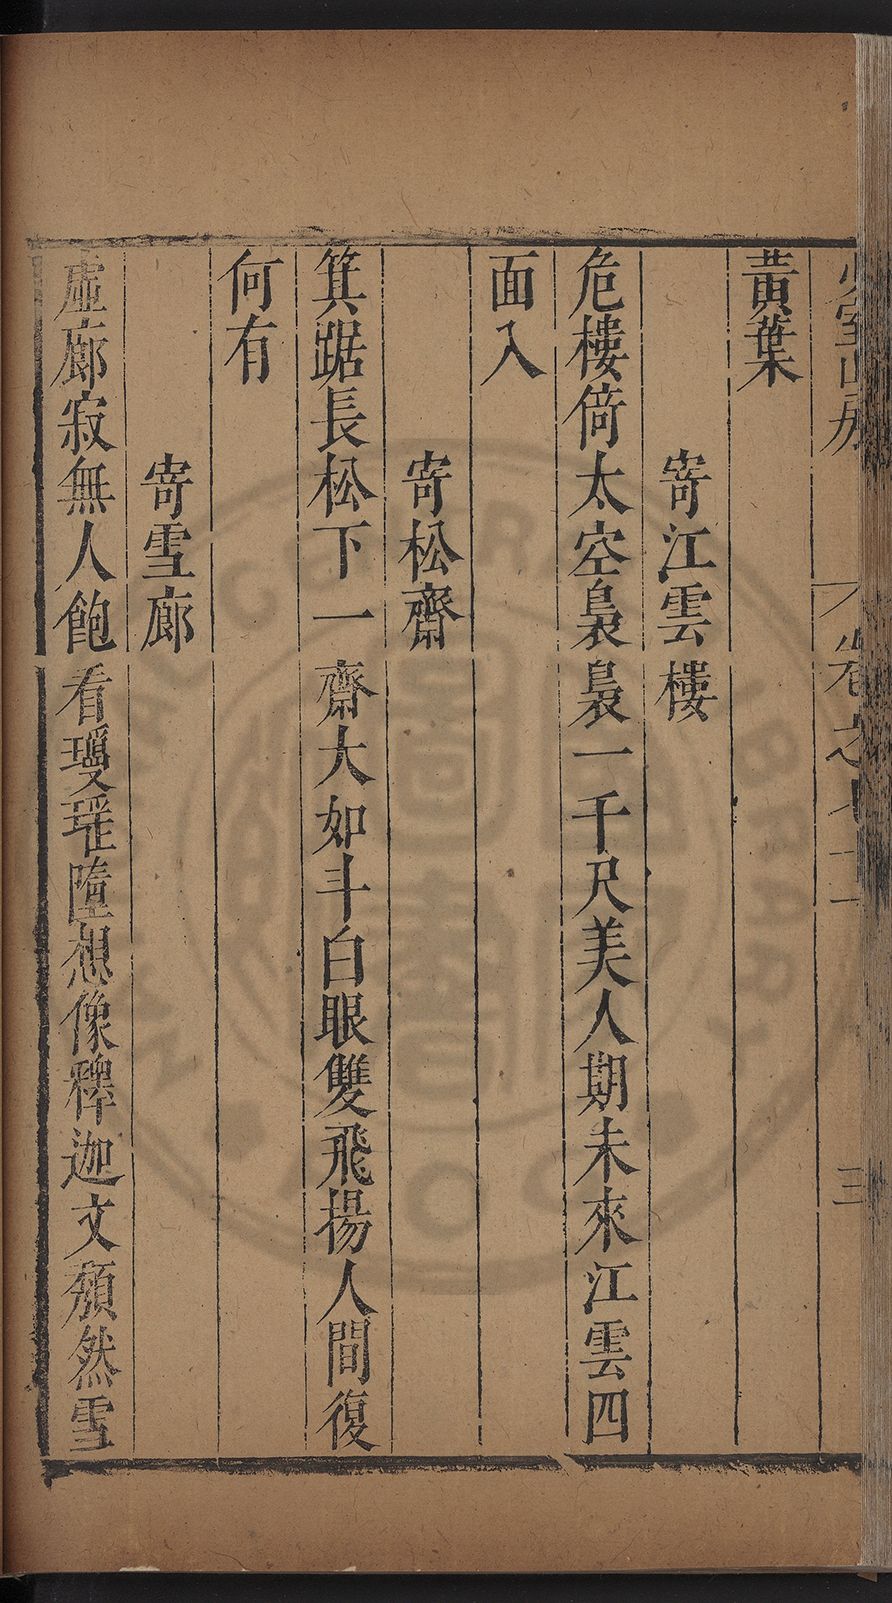 少室山房 卷之七十二 三
黃葉
寄江雲樓
危樓倚太空裊裊一千尺美人期未來江雲四
面入
寄松齋
箕踞長松下一齋大如斗白眼雙飛揚人間復
何有
寄雪廊
虛廊寂無人飽看瓊瑤墮想像釋迦文頹然雪